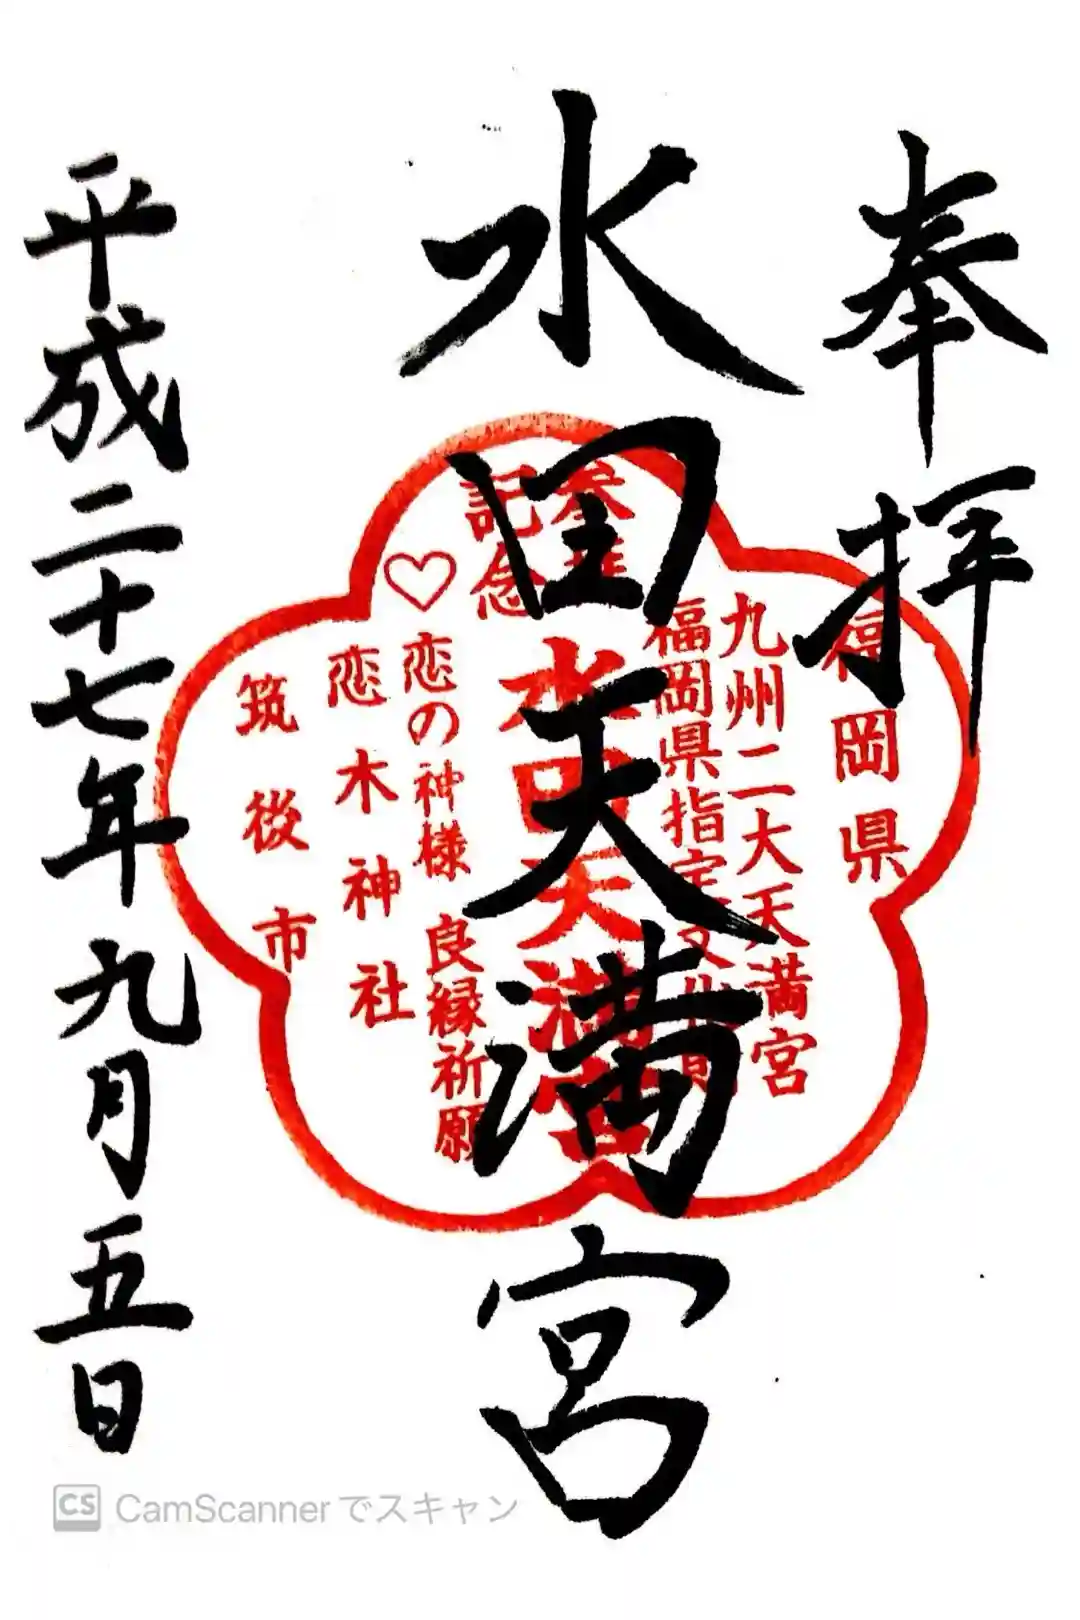 奉拝
水田天満宮
平成二十七年九月五日
福岡県
九州二大天満宮
福岡県指定文化
水田天満宮
記念
♡
恋の神様 良縁祈願
恋木神社
筑後市
CS CamScannerでスキャン